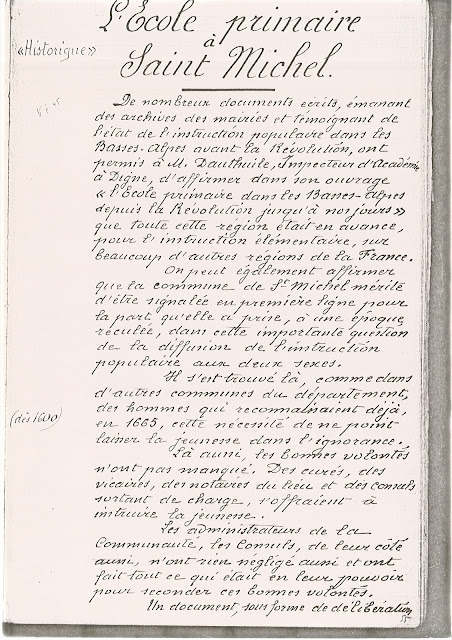 L'Ecole primaire
à
Saint Michel.
«Historique»
De nombreux documents écrits, émanant
des archives des mairies et témoignant de
l'état de l'instruction populaire dans les
Basses-Alpes avant la Révolution, ont
permis à M. Dauthuile, Inspecteur d'Académie
à Digne, d'affirmer dans son ouvrage
«l'Ecole primaire dans les Basses-Alpes
depuis la Révolution jusqu'à nos jours»
que toute cette région était en avance,
pour l'instruction élémentaire, sur
beaucoup d'autres régions de la France.
On peut également affirmer
que la commune de St Michel mérite
d'être signalée en première ligne pour
la part qu'elle a prise, à une époque
réculée, dans cette importante question
de la diffusion de l'instruction
populaire aux deux sexes.
Il s'est trouvé là, comme dans
d'autres communes du département,
des hommes qui reconnaissaient déjà,
(dès 1600)
en 1665, cette nécessité de ne point
laisser la jeunesse dans l'ignorance.
Là aussi, les bonnes volontés
n'ont pas manqué. Des curés, des
vicaires, des notaires du lieu et des consuls
sortant de charge, s'offraient à
instruire la jeunesse.
Les administrateurs de la
Communauté, les Consuls, de leur côté
aussi, n'ont rien négligé aussi et ont
fait tout ce qui était en leur pouvoir
pour seconder ces bonnes volontés.
Un document, sous forme de délibération